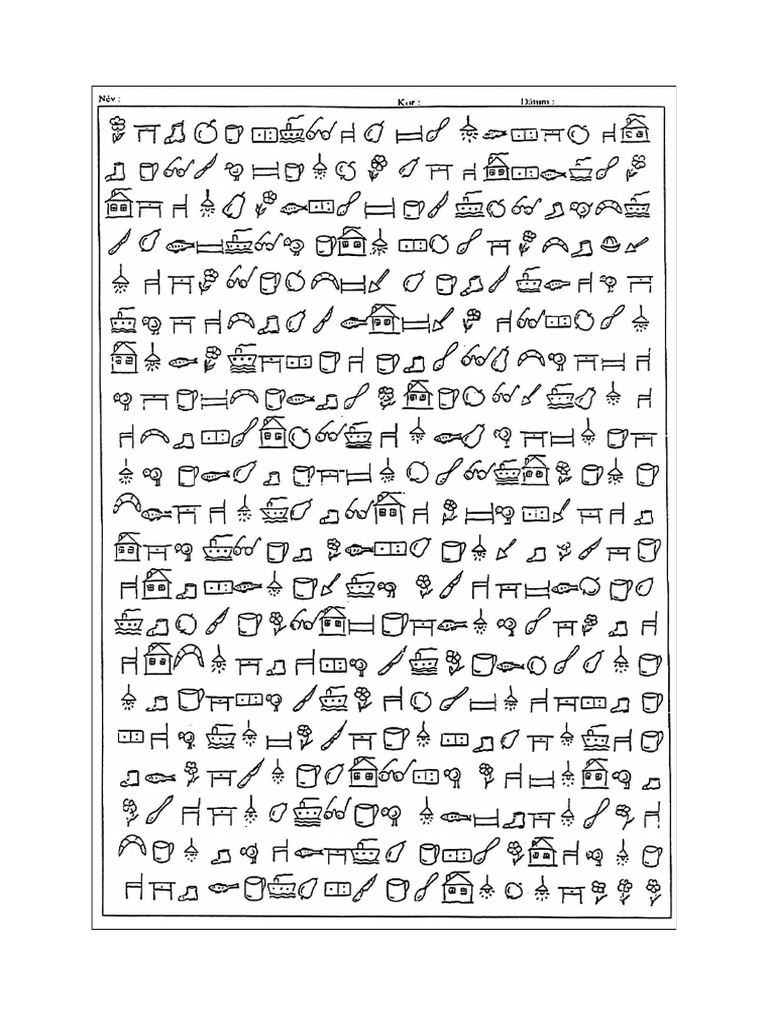 Név : Kor : Dátum :